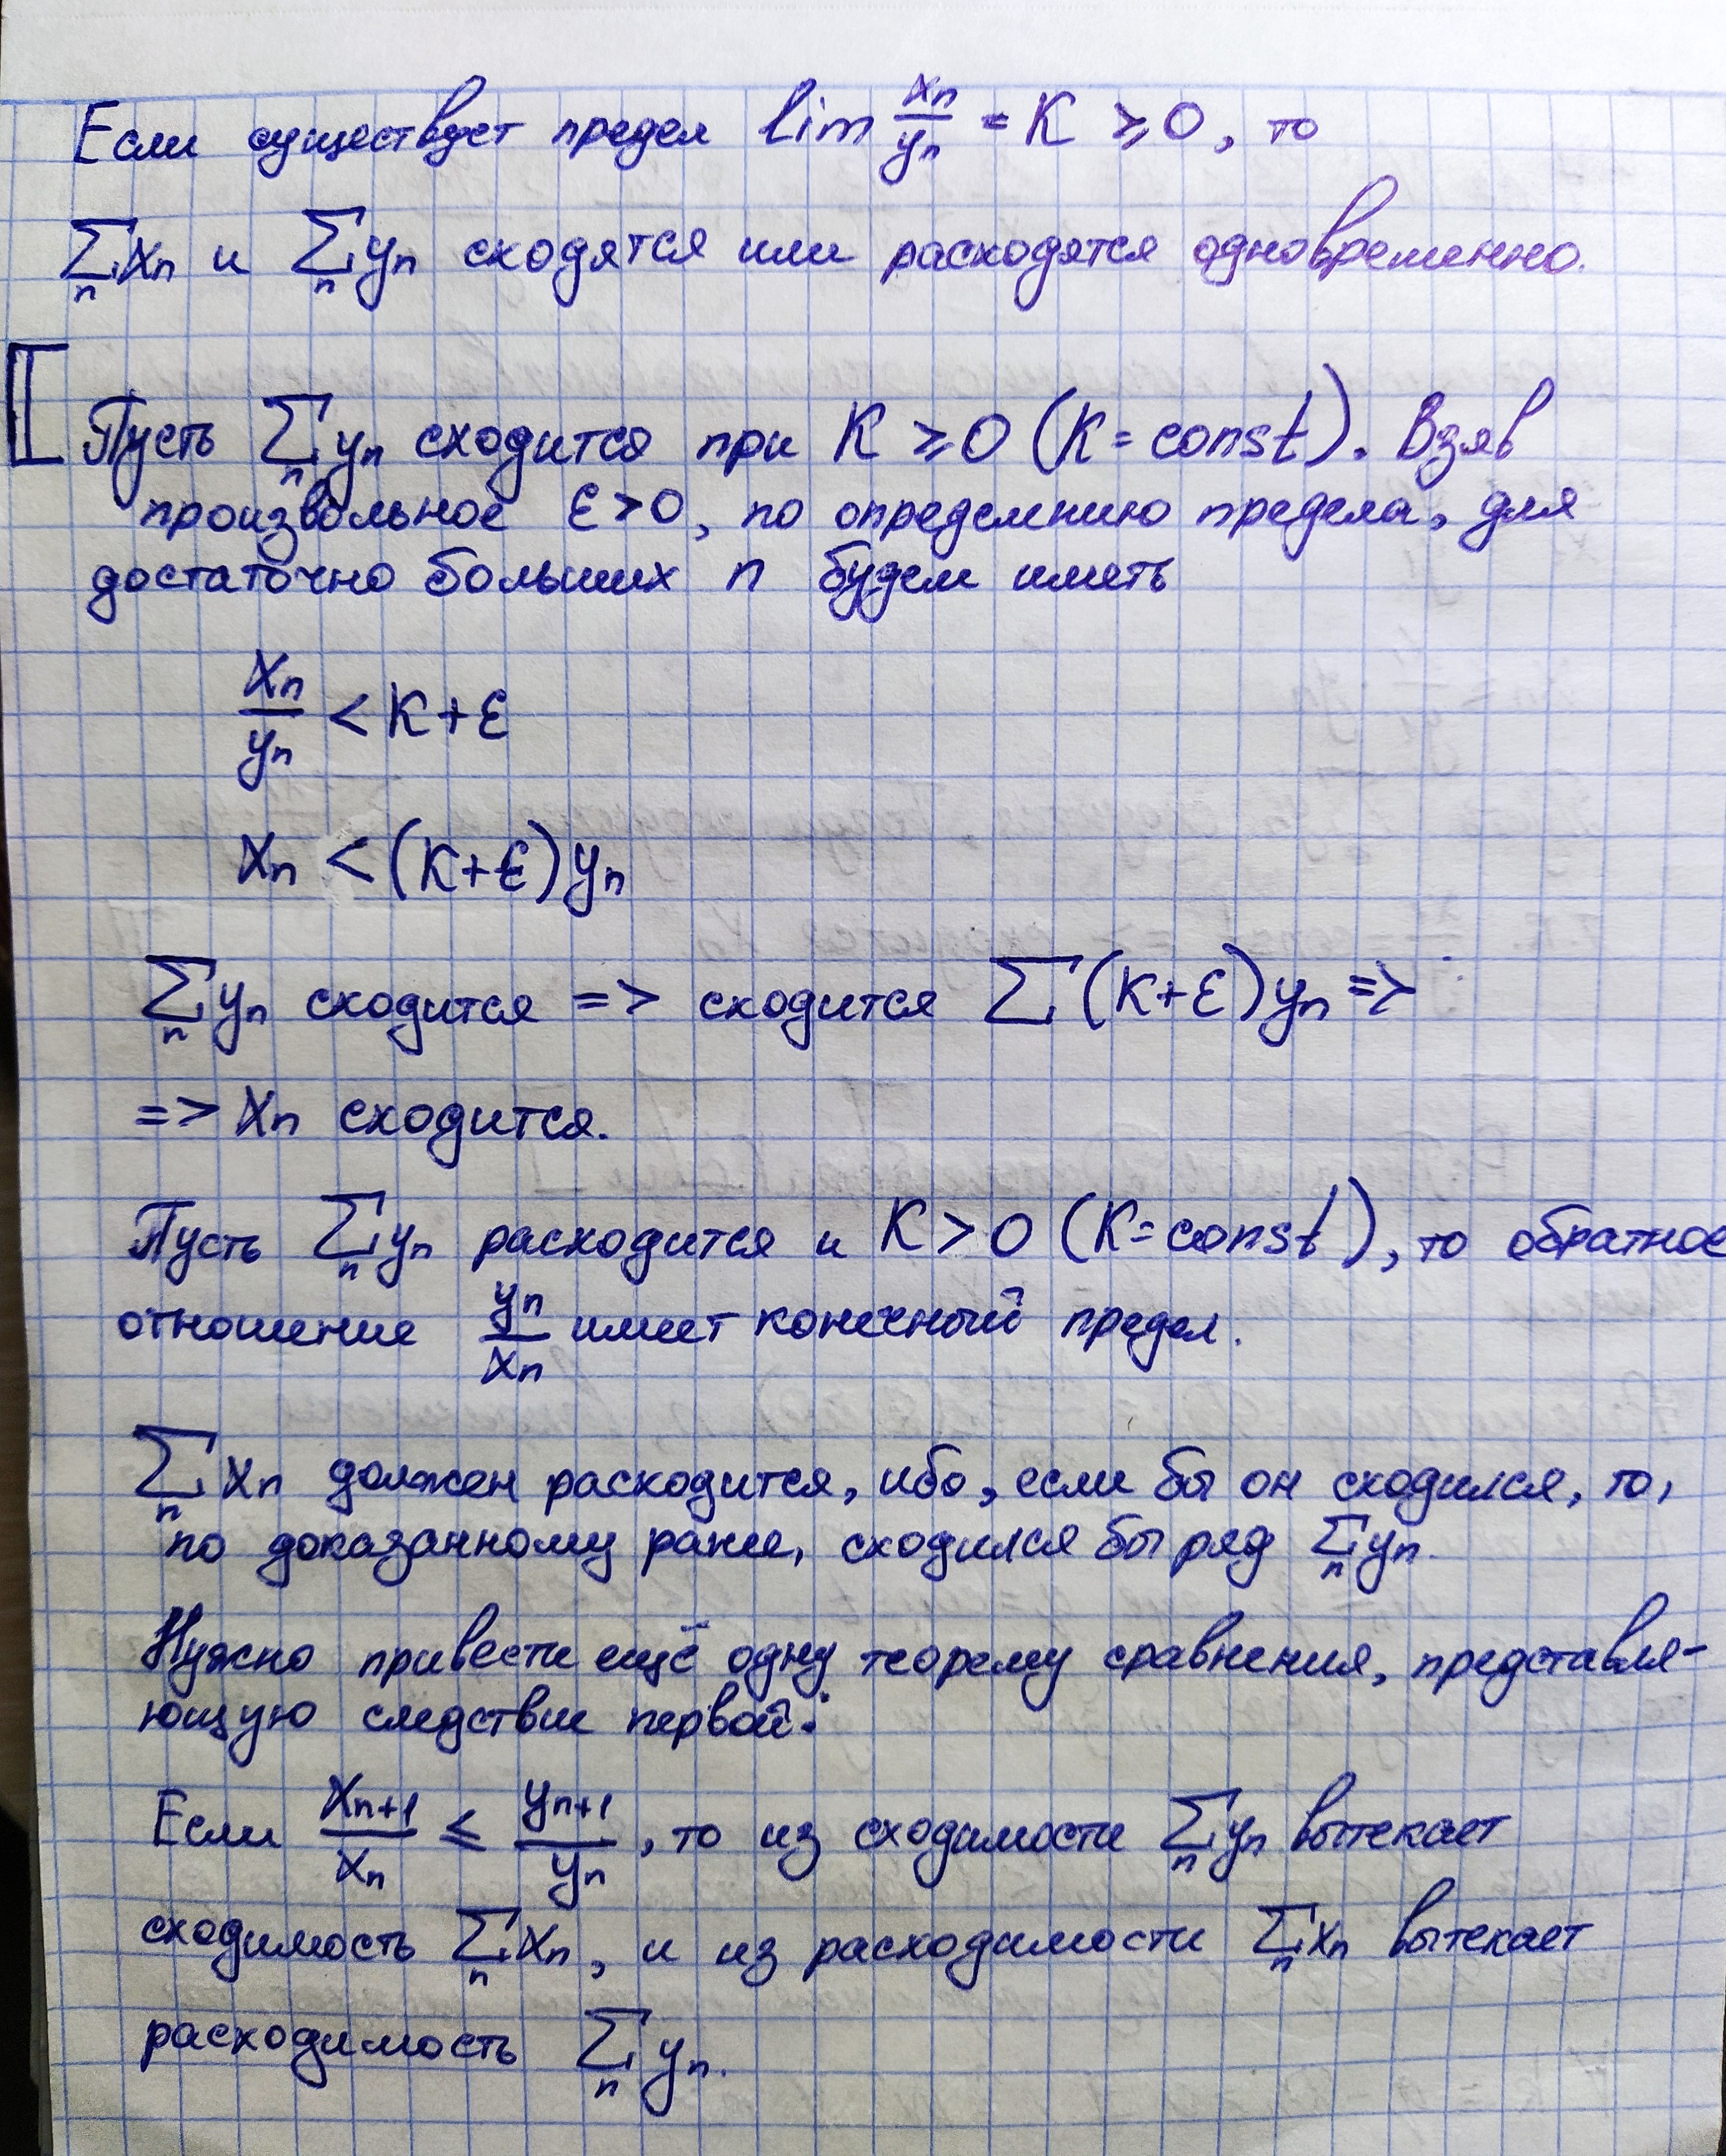 Если существует предел lim xₙ/yₙ = K ⩾ 0, то
∑ₙ xₙ и ∑ₙ yₙ сходятся или расходятся одновременно.
Пусть ∑ₙ yₙ сходится при K ⩾ 0 (K = const). Взяв
произвольное ε > 0, по определению предела, для
достаточно больших n будем иметь
xₙ/yₙ < K + ε
xₙ < (K + ε) yₙ
∑ₙ yₙ сходится => сходится ∑ (K + ε) yₙ =>
=> xₙ сходится.
Пусть ∑ₙ yₙ расходится и K > 0 (K = const), то обратное
отношение yₙ/xₙ имеет конечный предел.
∑ₙ xₙ должен расходится, ибо, если бы он сходился, то,
по доказанному ранее, сходился бы ряд ∑ₙ yₙ.
Нужно привести ещё одну теорему сравнения, представля-
ющую следствие первой:
Если xₙ₊₁/xₙ ⩽ yₙ₊₁/yₙ, то из сходимости ∑ₙ yₙ вытекает
сходимость ∑ₙ xₙ, и из расходимости ∑ₙ xₙ вытекает
расходимость ∑ₙ yₙ.